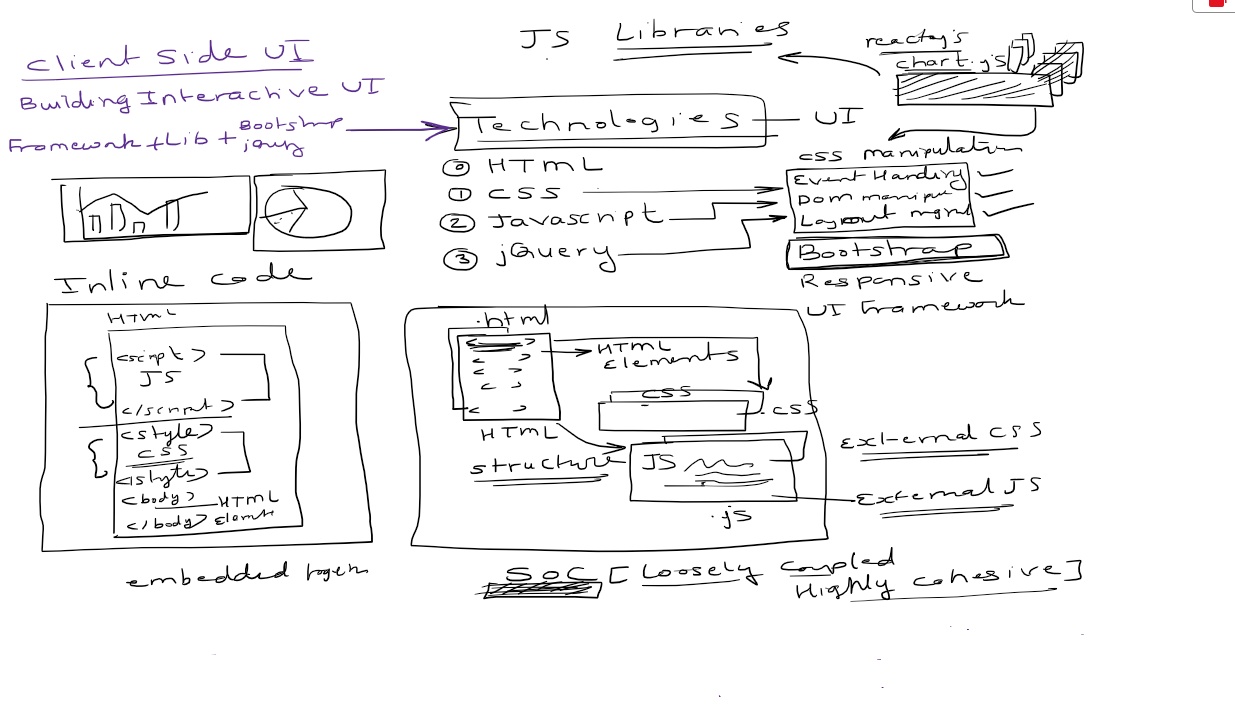 JS Libraries
reactjs
chart.js
Client Side UI
Building Interactive UI
Framework + Lib + Bootstrap
jquery
Technologies
UI
⓪ HTML
① CSS
② Javascript
③ jQuery
CSS manipulation
Event Handling
DOM manipul
Layout mgmt
Bootstrap
Responsive
UI Framework
Inline code
HTML
<script>
JS
</script>
<style>
CSS
</style>
<body> HTML
</body> Element
embedded
.html
< >
< >
< >
< >
< >
HTML
Elements
CSS
.css
HTML
structure
JS
.js
External CSS
External JS
SoC [Loosely Coupled
Highly cohesive]